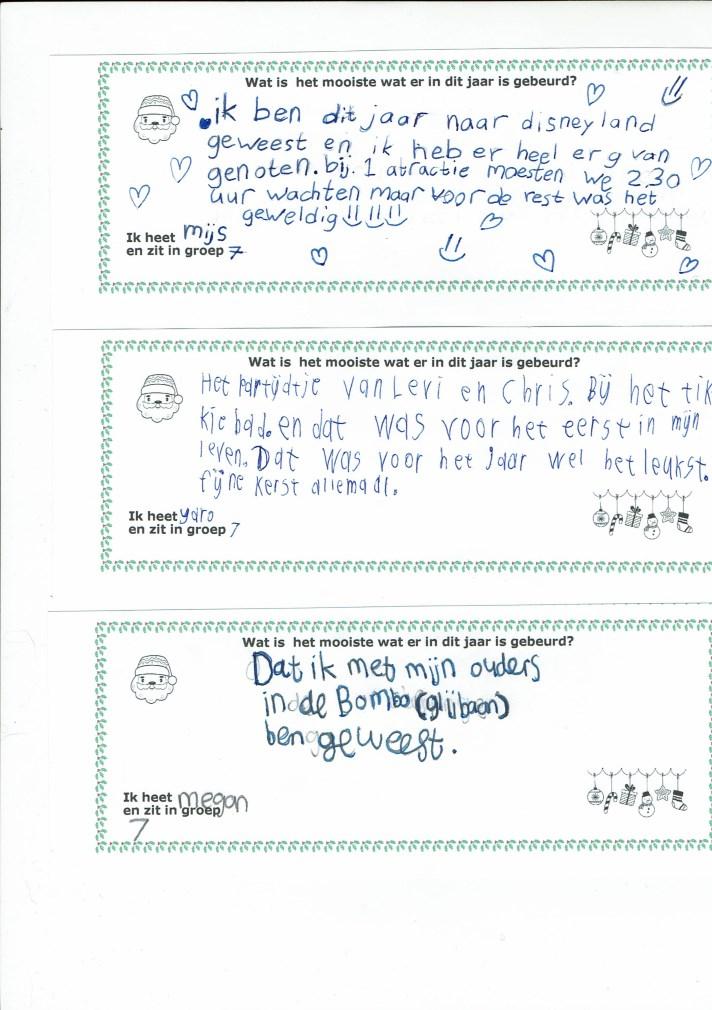 Wat is het mooiste wat er in dit jaar is gebeurd?
ik ben dit jaar naar disneyland
geweest en ik heb er heel erg van
genoten. bij. 1 atractie moesten we 2.30
uur wachten maar voor de rest was het
geweldig !! !! !!
Ik heet mijs
en zit in groep 7
Wat is het mooiste wat er in dit jaar is gebeurd?
Het Partijdtje van Levi en Chris. Bij het tik
kie bad. en dat was voor het eerst in mijn
leven. Dat was voor het Jaar wel het leukst.
fijne kerst allemaal.
Ik heet yaro
en zit in groep 7
Wat is het mooiste wat er in dit jaar is gebeurd?
Dat ik met mijn ouders
in de Bombo (glijbaan)
ben geweest.
Ik heet megan
en zit in groep
7